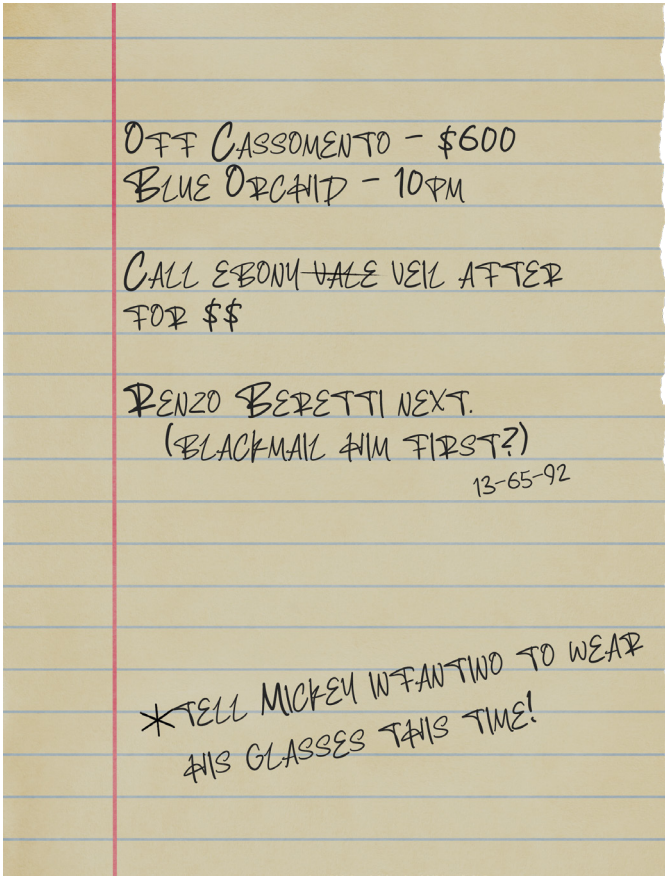 Off Cassomento - $600
Blue Orchid - 10pm
Call Ebony Vale Veil after
for $$
Renzo Beretti next.
(Blackmail him first?)
13-65-92
*Tell Mickey Infantino to wear
his glasses this time!